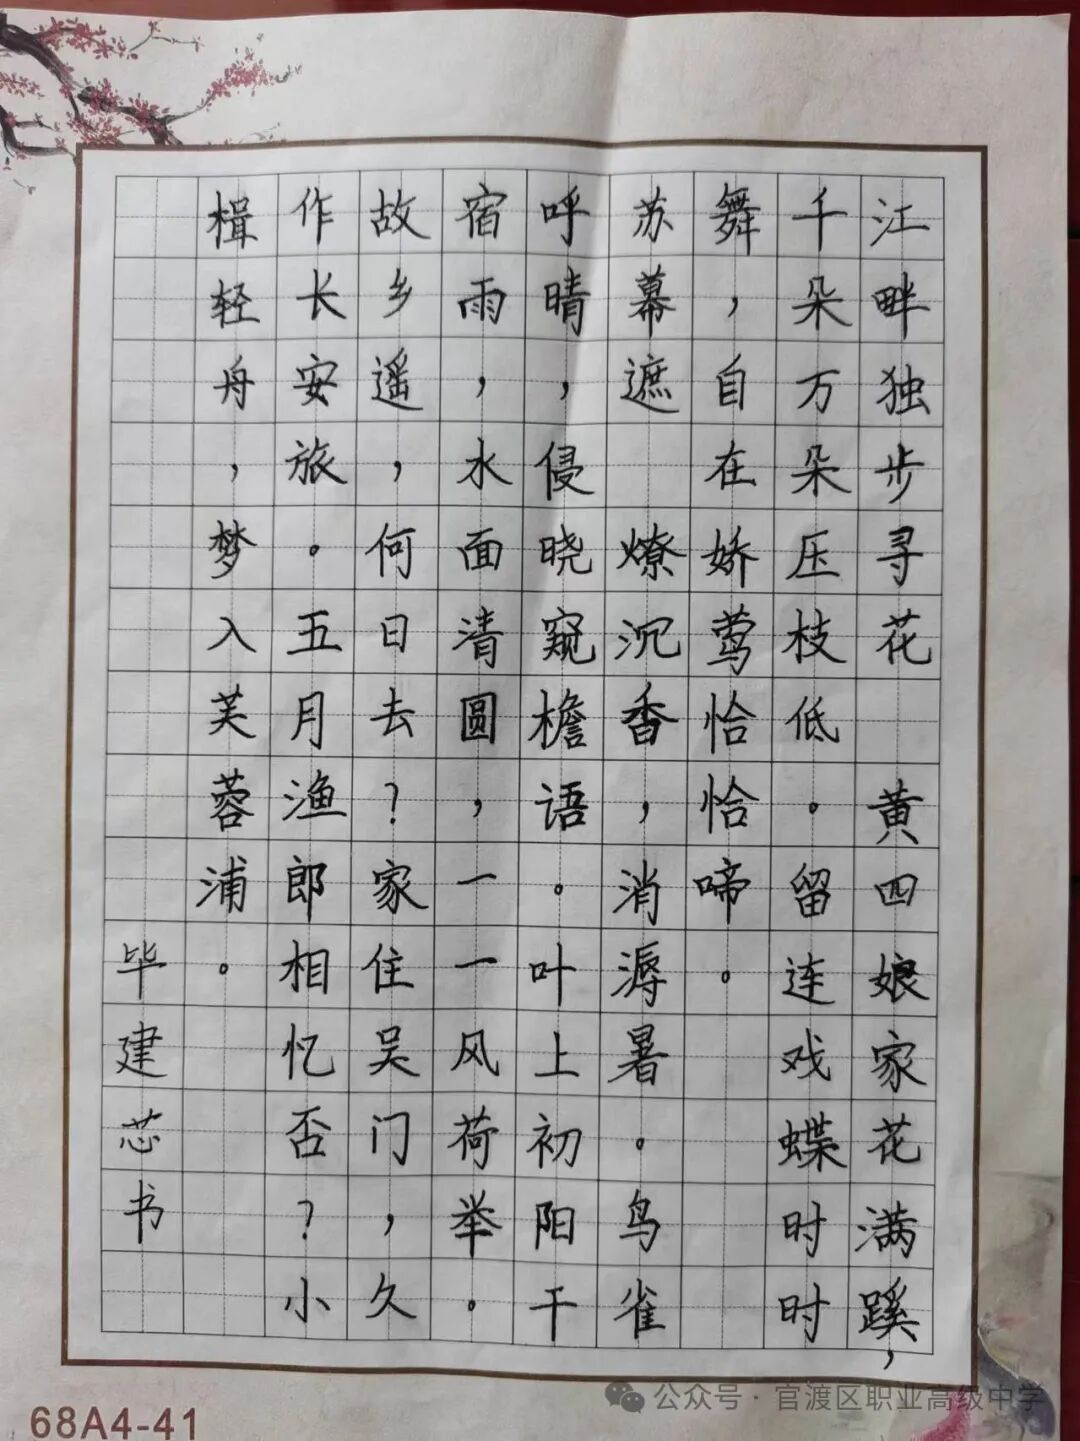 江畔独步寻花 黄四娘家花满蹊，
千朵万朵压枝低。留连戏蝶时时
舞，自在娇莺恰恰啼。
苏幕遮 燎沉香，消溽暑。鸟雀
呼晴，侵晓窥檐语。叶上初阳干
宿雨，水面清圆，一一风荷举。
故乡遥，何日去？家住吴门，久
作长安旅。五月渔郎相忆否？小
楫轻舟，梦入芙蓉浦。
毕建芯书
68A4-41
公众号·官渡区职业高级中学